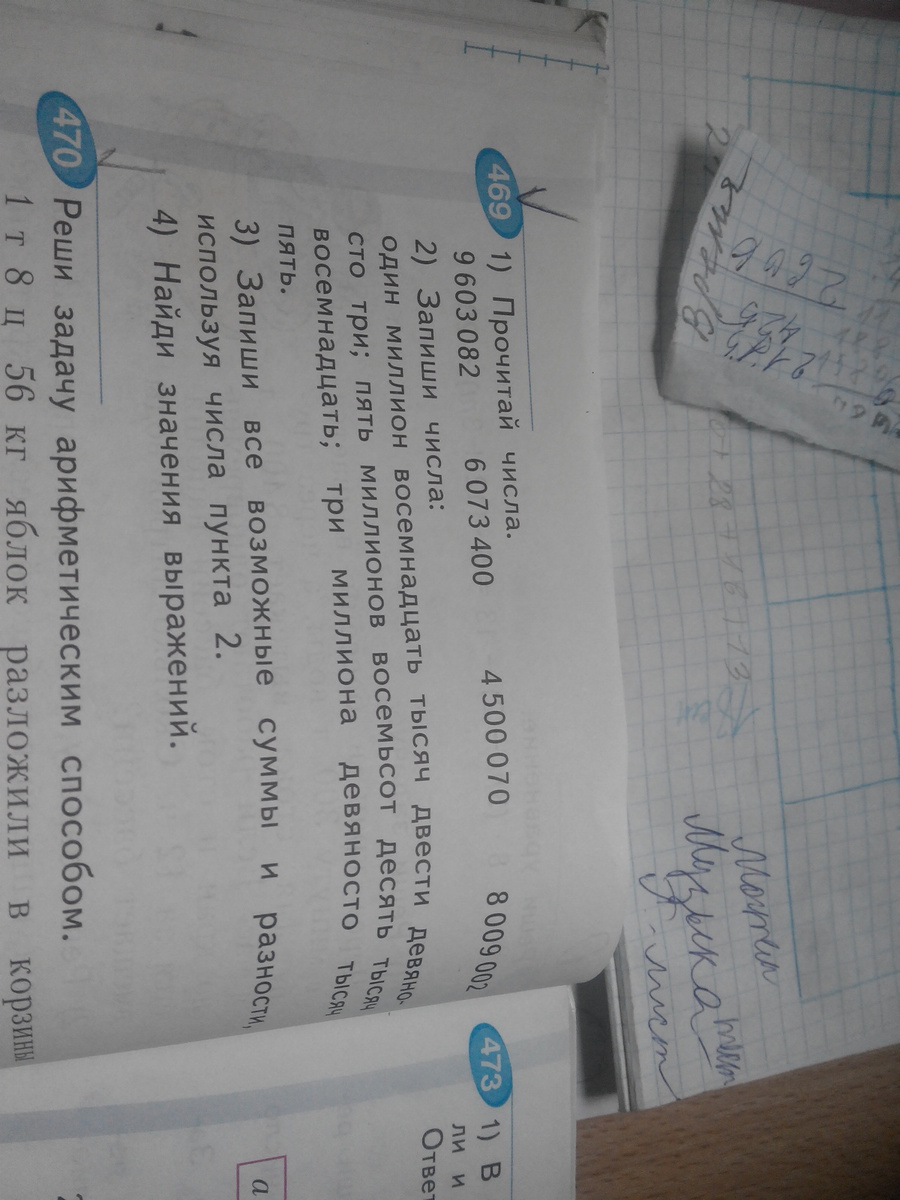 469 1) Прочитай числа.
9 603 082 6 073 400 4 500 070 8 009 002
2) Запиши числа:
один миллион восемнадцать тысяч двести девяно-
сто три; пять миллионов восемьсот десять тысяч
восемнадцать; три миллиона девяносто тысяч
пять.
3) Запиши все возможные суммы и разности,
используя числа пункта 2.
4) Найди значения выражений.
470 Реши задачу арифметическим способом.
1 т 8 ц 56 кг яблок разложили в корзины
473 1) В
ли и
Ответ
а
Музыка
лист